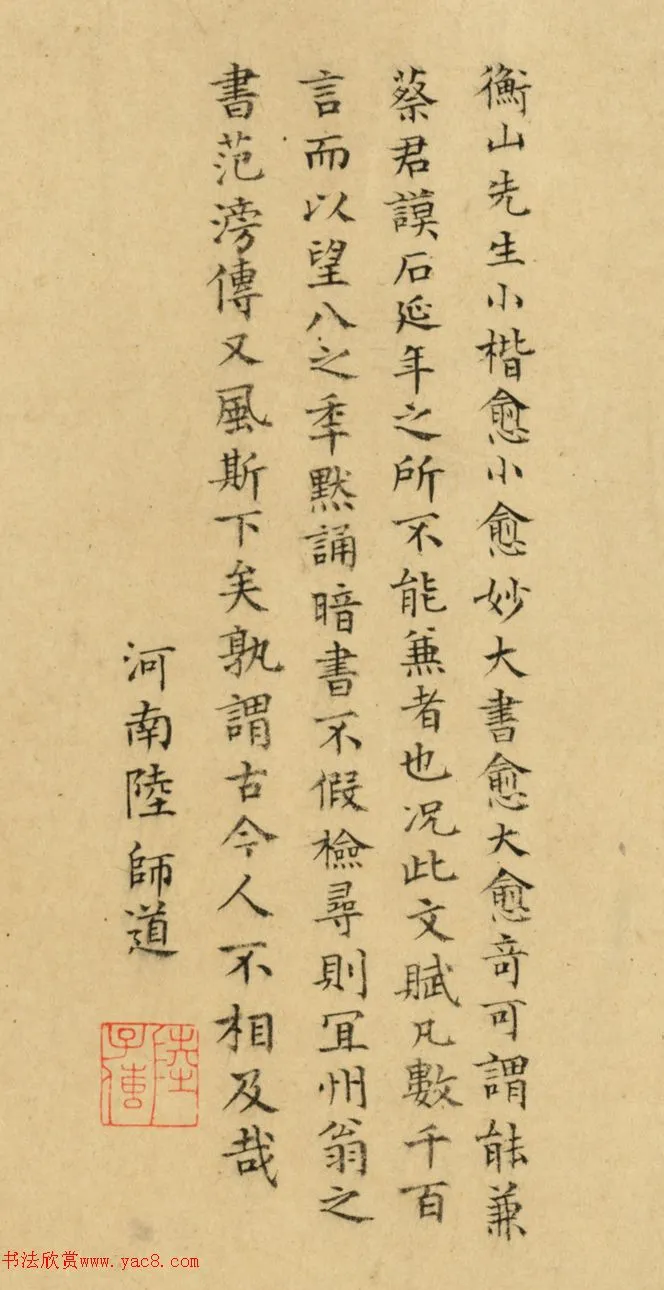 衡山先生小楷愈小愈妙大書愈大愈奇可謂能兼
蔡君謨石延年之所不能兼者也况此文賦凡數千百
言而以望八之季默誦暗書不假檢尋則宜州翁之
書范滂傳又風斯下矣孰謂古今人不相及哉
河南陸師道
陸子傳
书法欣赏www.yac8.com